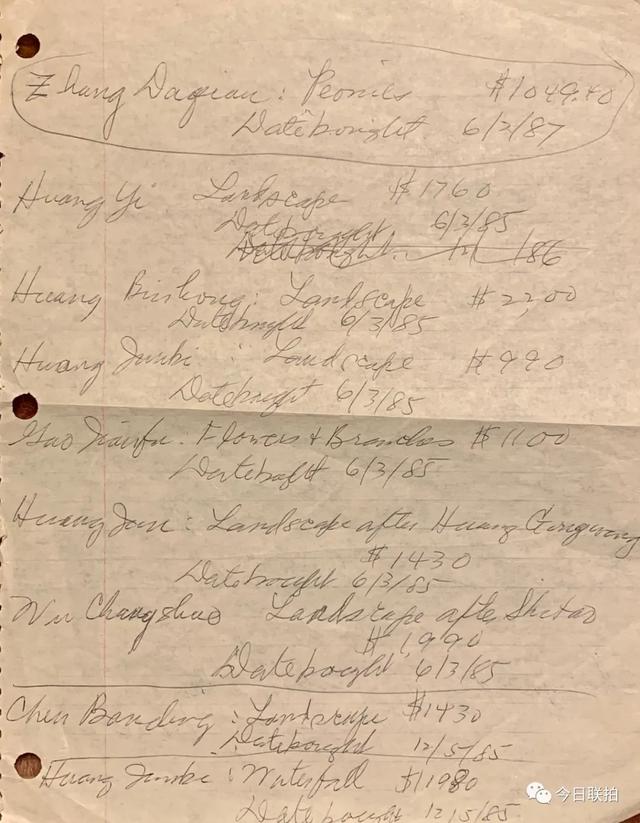 Zhang Daqian: Peonies $1049.40
Date bought 6/2/87
Huang Yi Landscape $1760
Date bought 6/3/85
Date bought 12/ /86
Huang Binhong: Landscape $2200
Date bought 6/3/85
Huang Junbi: Landscape $990
Date bought 6/3/85
Gao Jianfu: Flowers & Branches $1100
Date bought 6/3/85
Huang Jun: Landscape after Huang Gongwang
$1430
Date bought 6/3/85
Wu Changshuo Landscape after Shitao
$1,990
Date bought 6/3/85
Chen Banding: Landscape $1430
Date bought 12/5/85
Huang Junbi: Waterfall $1980
Date bought 12/5/85
今日联拍